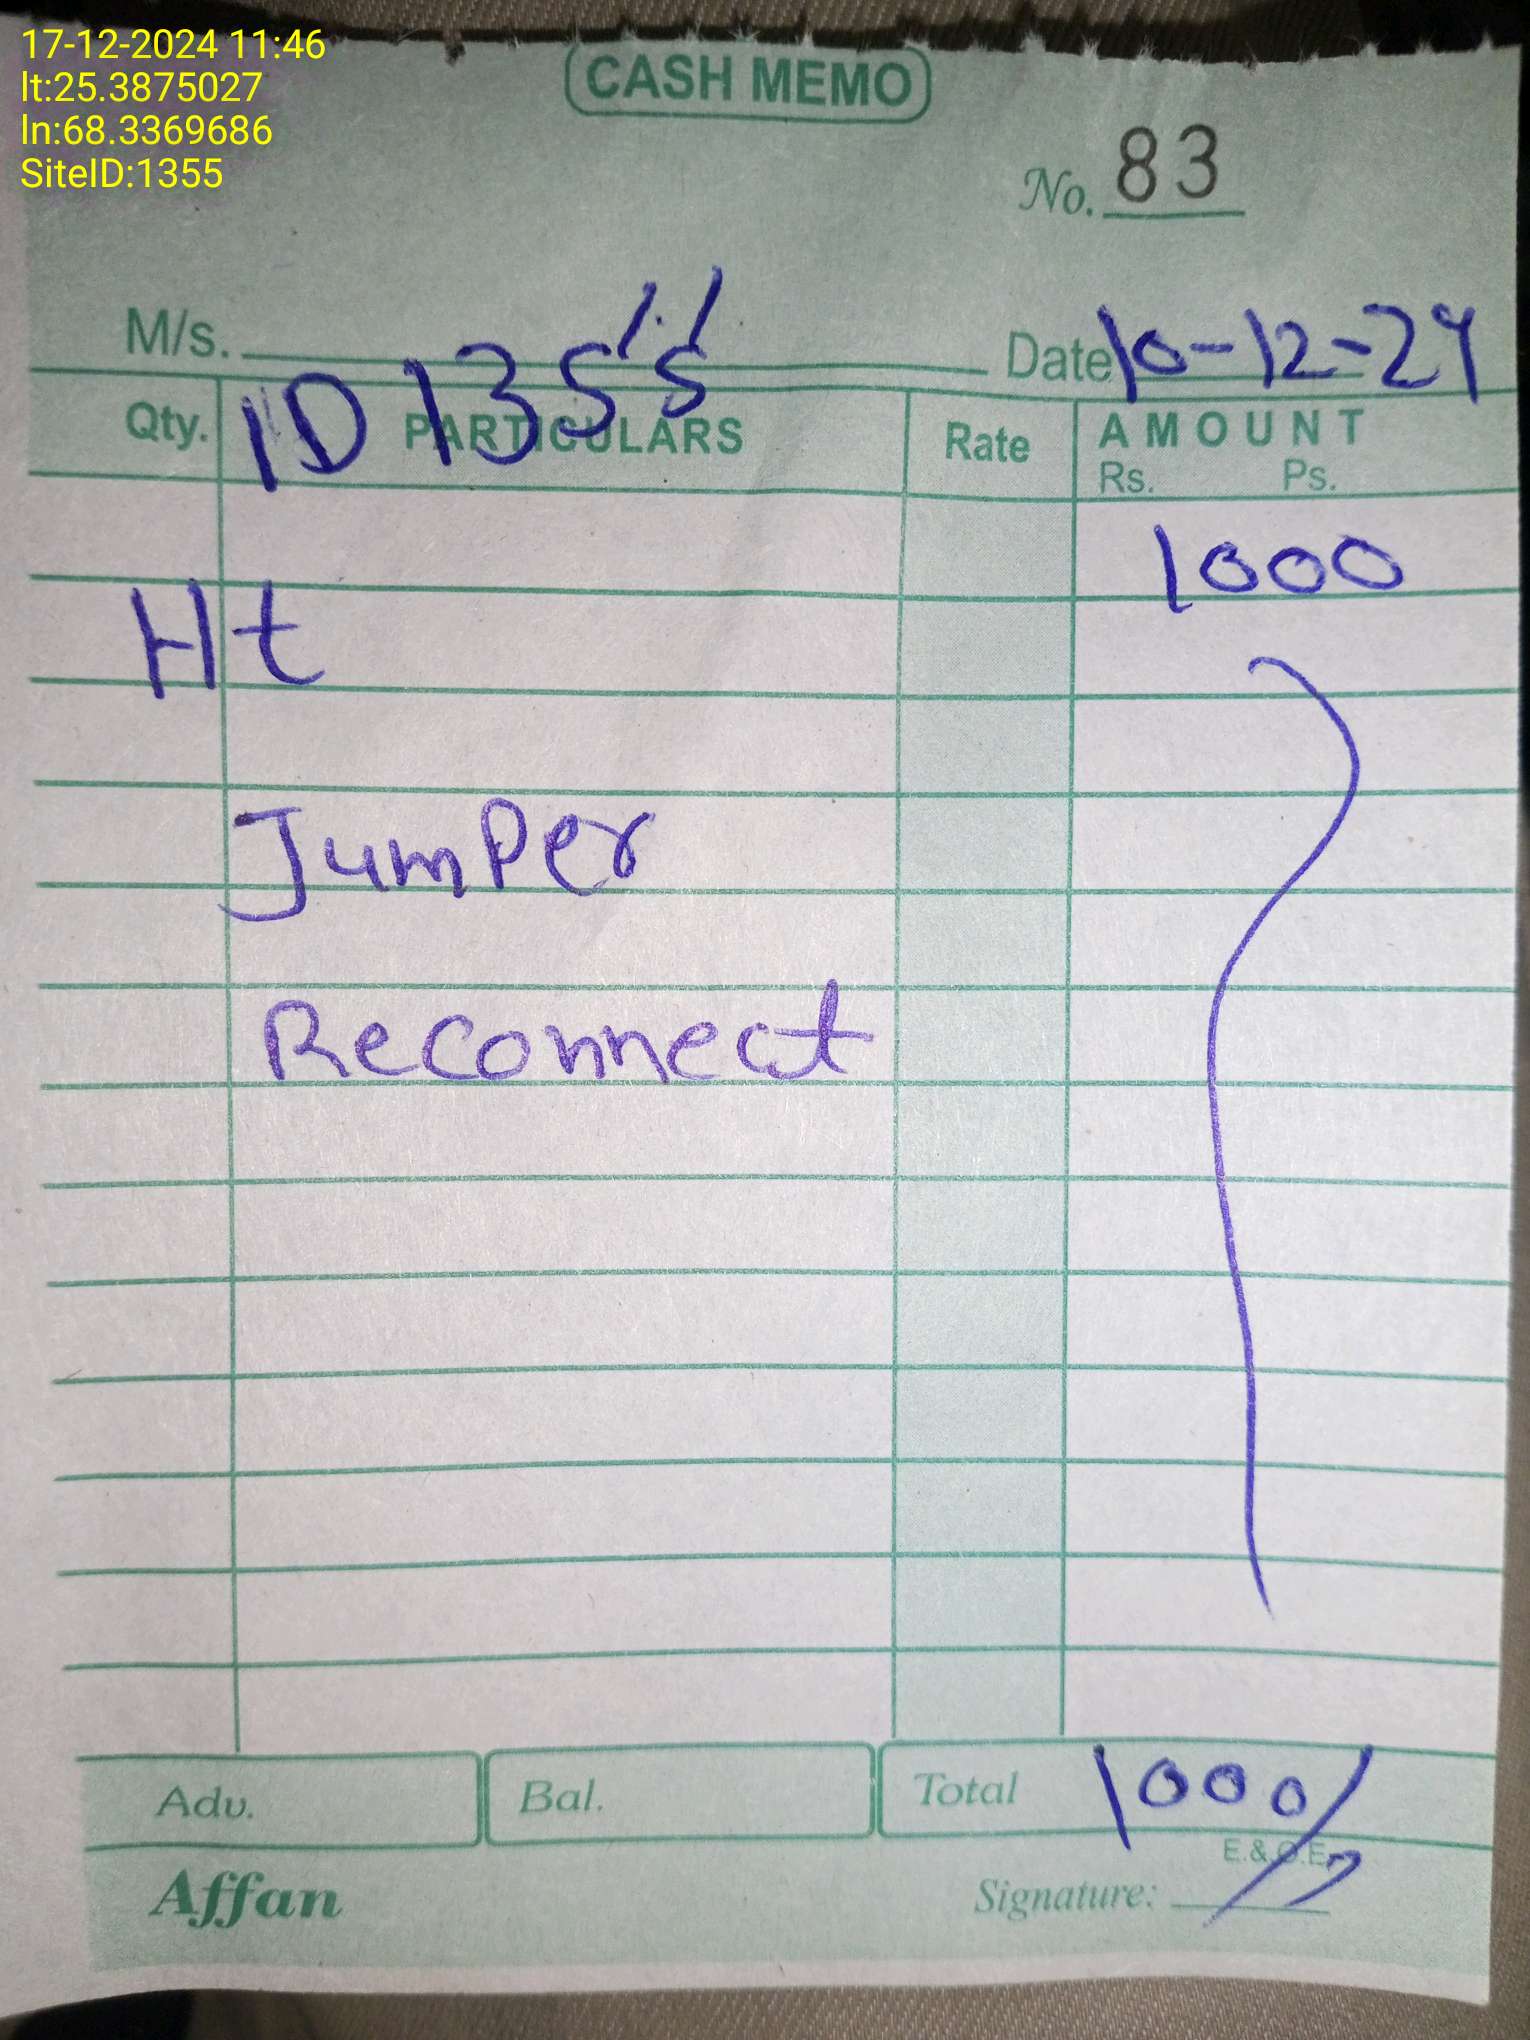 17-12-2024 11:46
lt:25.3875027
ln:68.3369686
SiteID:1355
CASH MEMO
No. 83
M/s.
Date 10-12-24
ID 1355
Qty. PARTICULARS Rate AMOUNT
Rs. Ps.
1000
Ht
Jumper
Reconnect
Adv. Bal. Total 1000/
E.&.O.E.
Affan Signature: